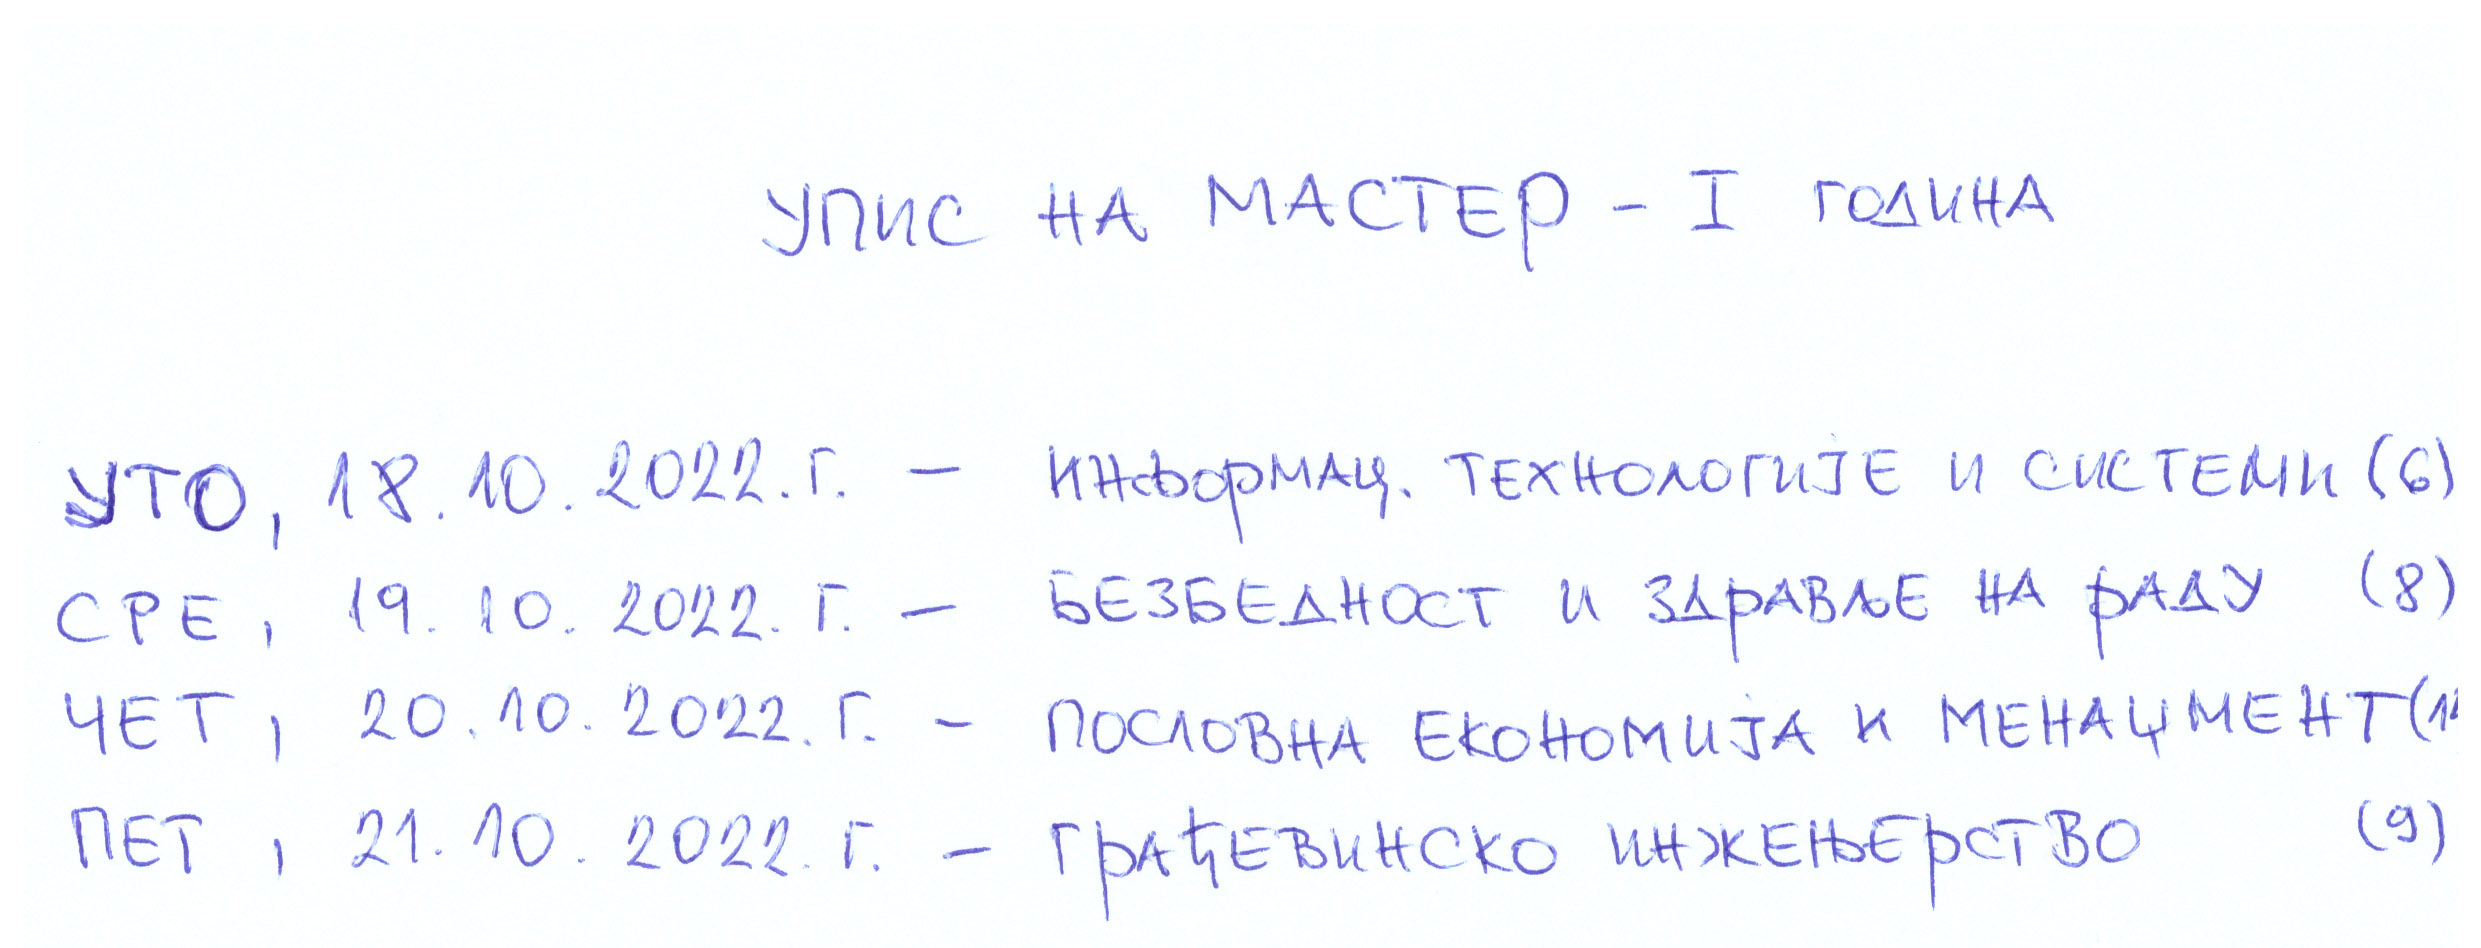 УПИС НА МАСТЕР - I ГОДИНА
УТО, 18.10.2022.г. - ИНФОРМАЦ. ТЕХНОЛОГИЈЕ И СИСТЕМИ (6)
СРЕ, 19.10.2022.г. - БЕЗБЕДНОСТ И ЗДРАВЉЕ НА РАДУ (8)
ЧЕТ, 20.10.2022.г. - ПОСЛОВНА ЕКОНОМИЈА И МЕНАЏМЕНТ
ПЕТ, 21.10.2022.г. - ГРАЂЕВИНСКО ИНЖЕЊЕРСТВО (9)